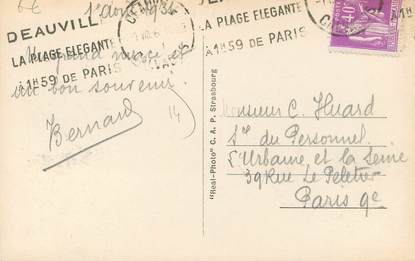 6-€
1er août 34
DEAUVILLE
LA PLAGE ELEGANTE
À 1H59 DE PARIS
LA PLAGE ELEGANTE
À 1H59 DE PARIS
40c
Un grand merci et
un bon souvenir.
Bernard
14
"Real-Photo" C. A. P. Strasbourg
Monsieur C. Huard
Sce du Personnel
S/ Urbaine et la Seine
39 Rue Le Peletier
Paris 9e